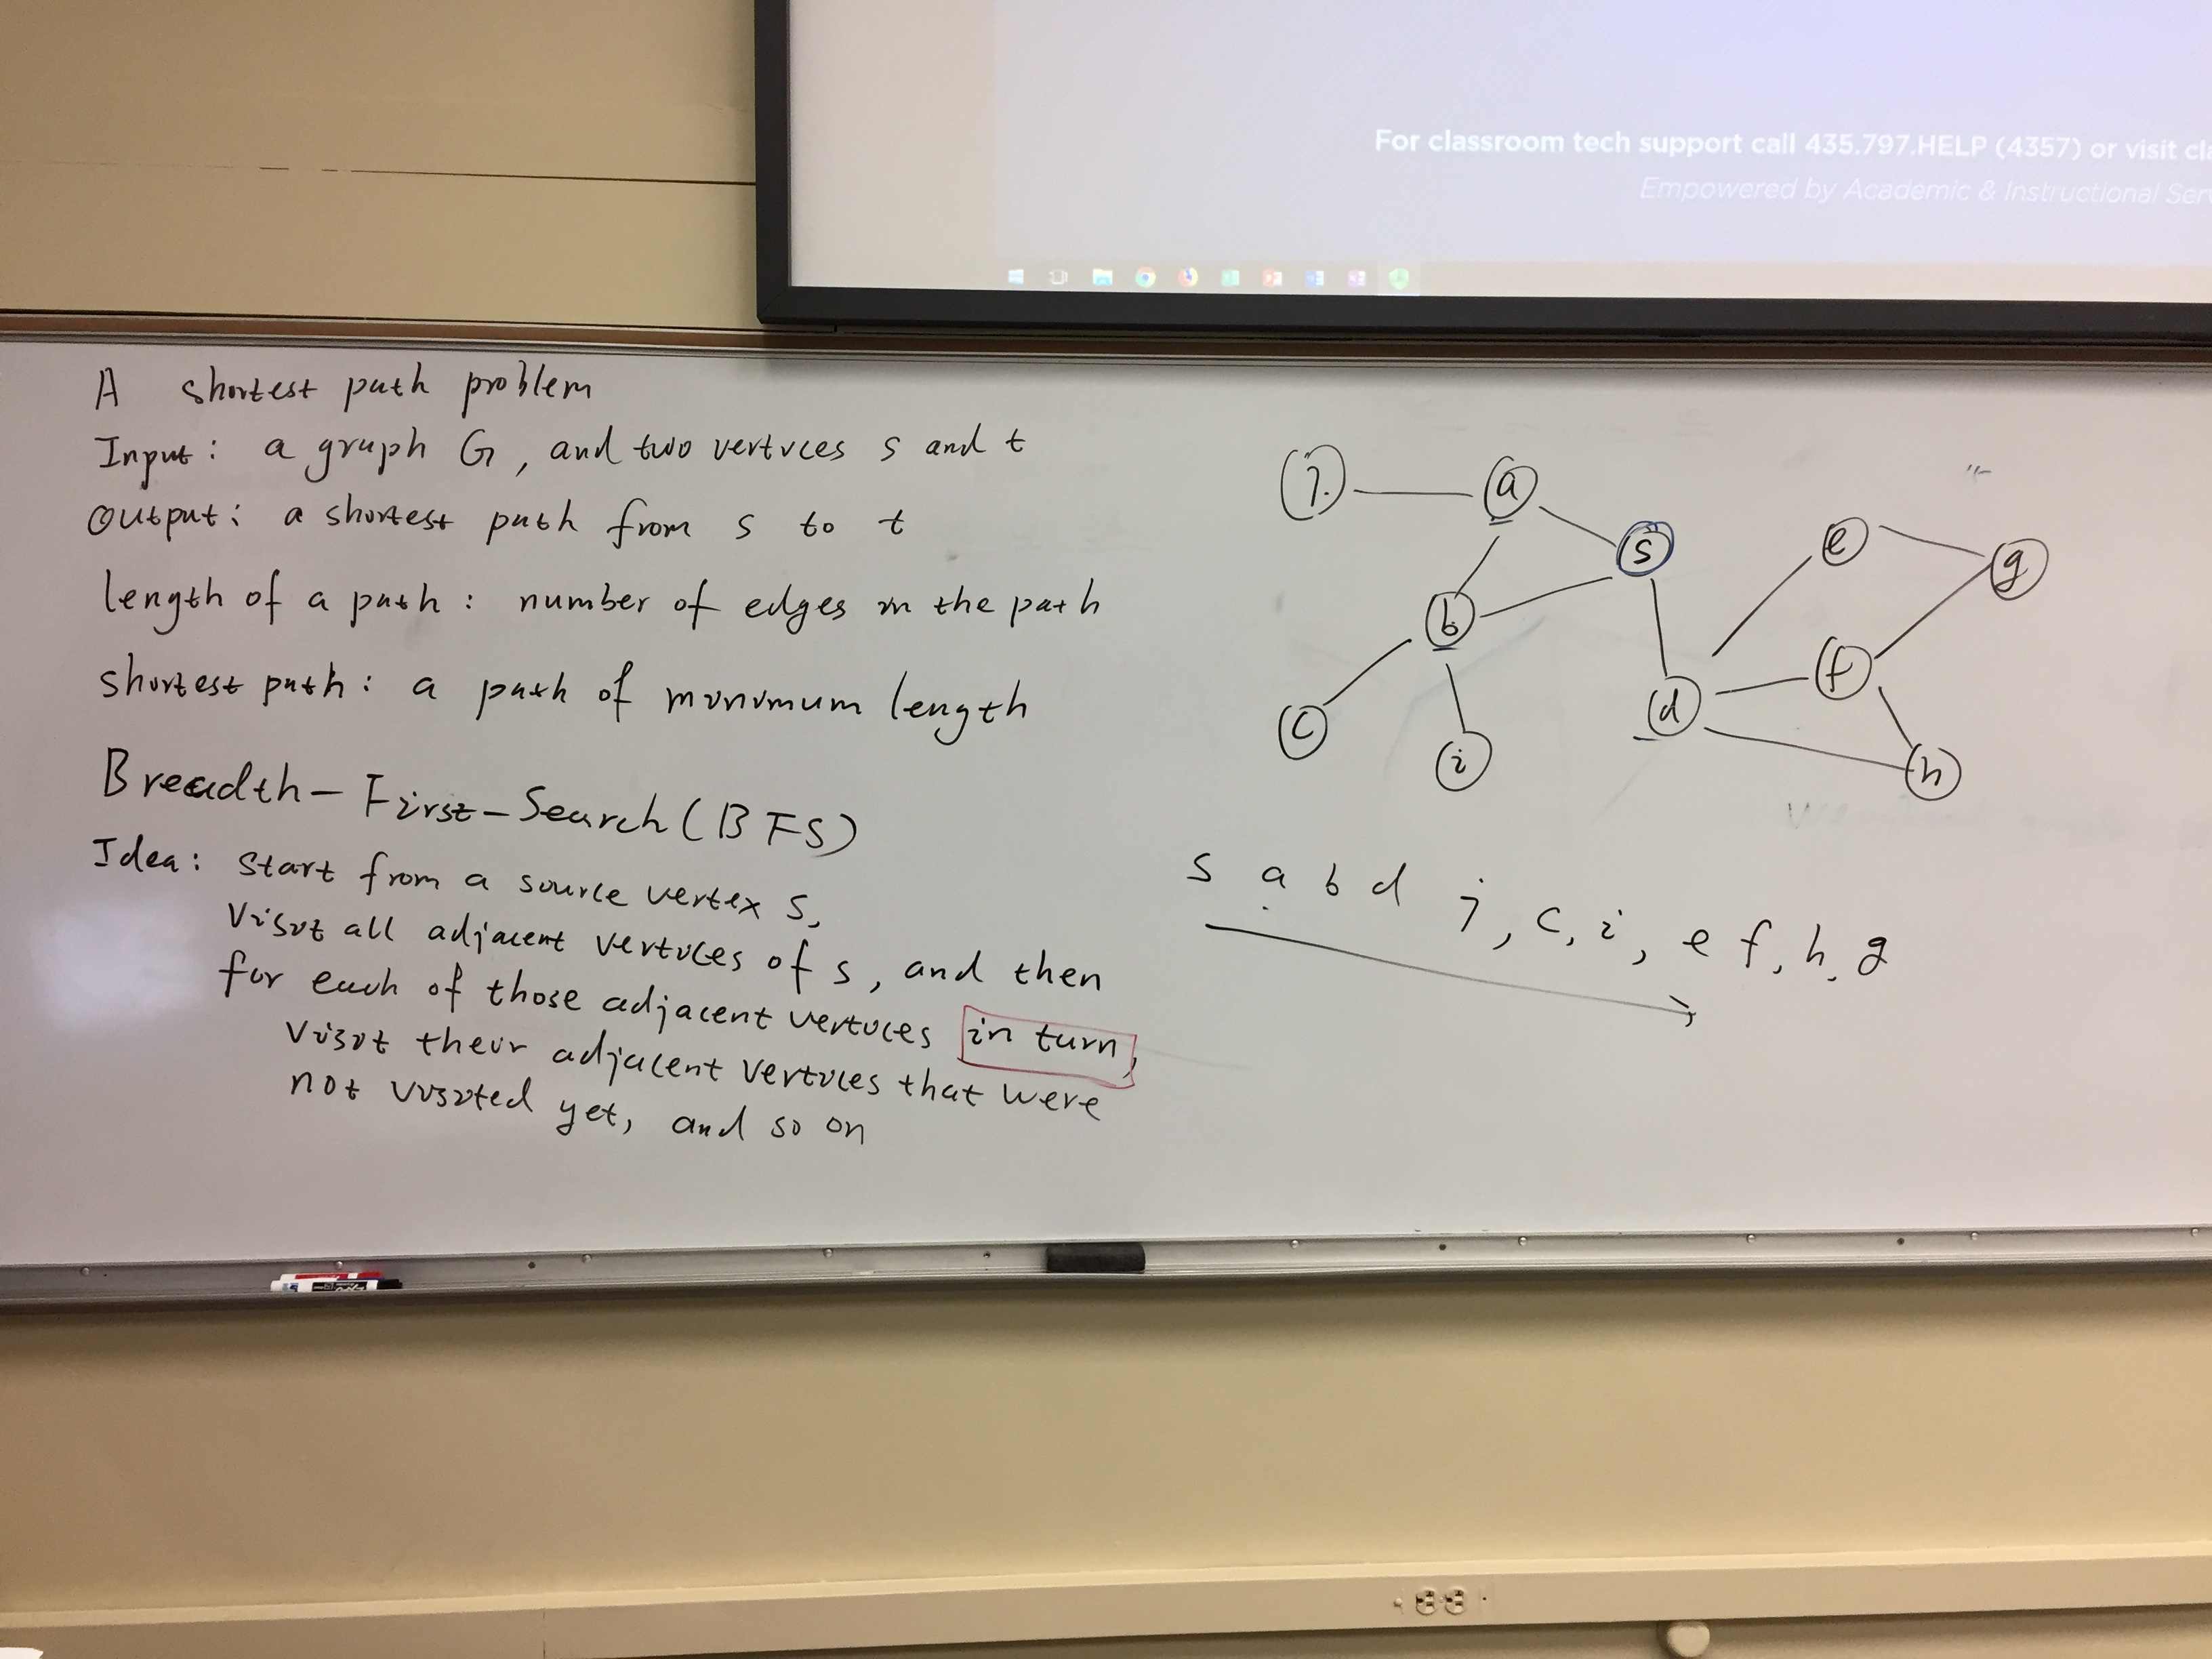 For classroom tech support call 435.797.HELP (4357) or visit
Empowered by Academic & Instructional
A shortest path problem
Input: a graph G, and two vertices s and t
Output: a shortest path from s to t
length of a path: number of edges in the path
shortest path: a path of minimum length
Breadth-First-Search (BFS)
Idea: Start from a source vertex s,
visit all adjacent vertices of s, and then
for each of those adjacent vertices in turn,
visit their adjacent vertices that were
not visited yet, and so on
j a
s e g
b f
d
c i h
s a b d j, c, i, e f, h, g